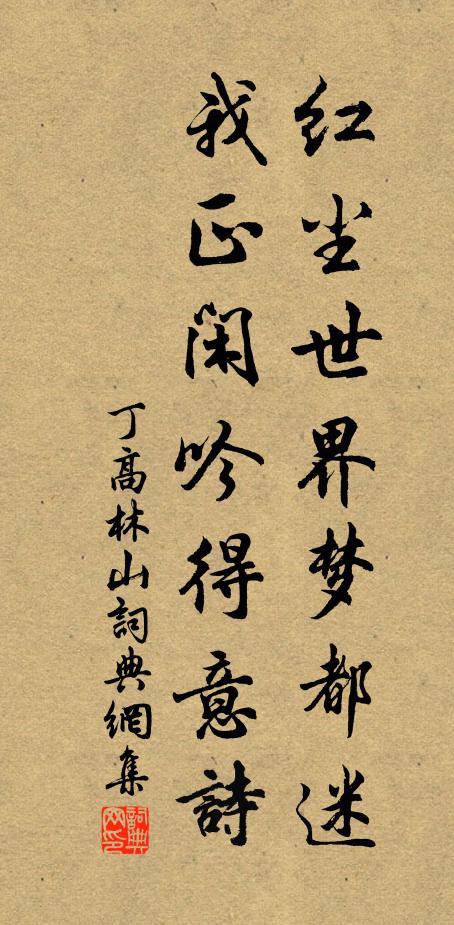 红尘世界梦都迷
我正闲吟得意詩
丁高林山詞典網集
詞典网印